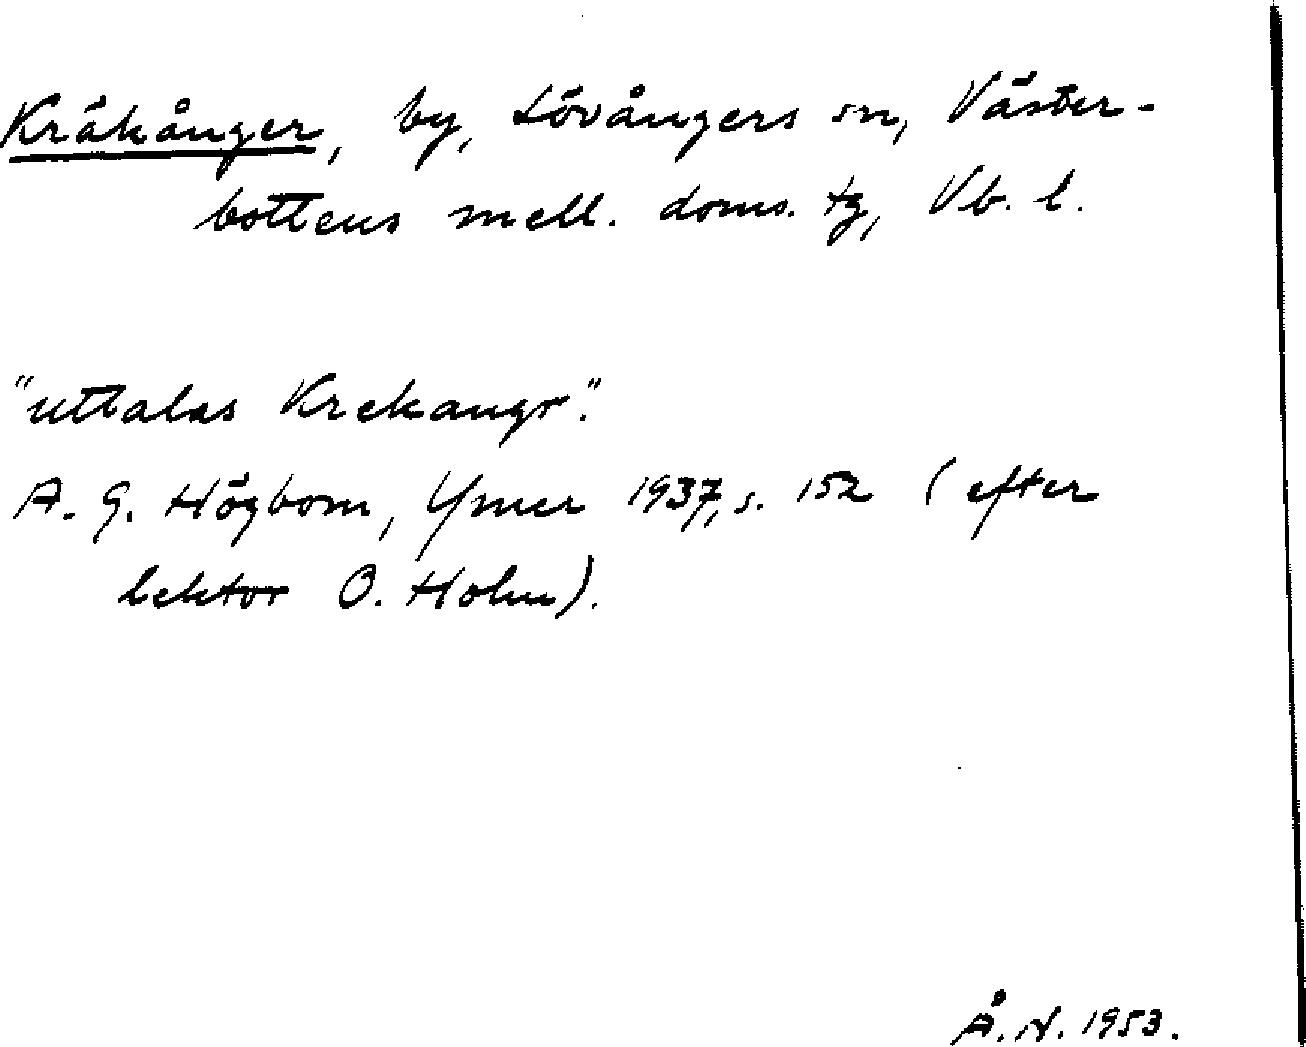 Kräkånger, by, Lövångers sn, Väster-
bottens mell. doms. tg, Vb. l.
"uttalas Krekangr".
A. G. Högbom, Ymer 1937, s. 152 (efter
lektor O. Holm).
Å. N. 1953.